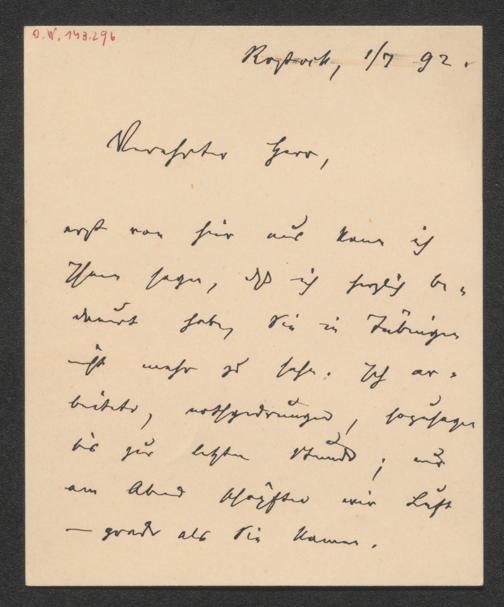 O.N. 143.296
Rostock, 1/7 92.
Verehrter Herr,
erst von hier aus kann ich
Ihnen sagen, daß ich herzlich be-
dauert habe, Sie in Tübingen
nicht mehr zu sehn. Ich ar-
beitete, nothgedrungen, sozusagen
bis zur letzten Stunde; nur
am Abend schöpften wir Luft
— grade als Sie kamen.